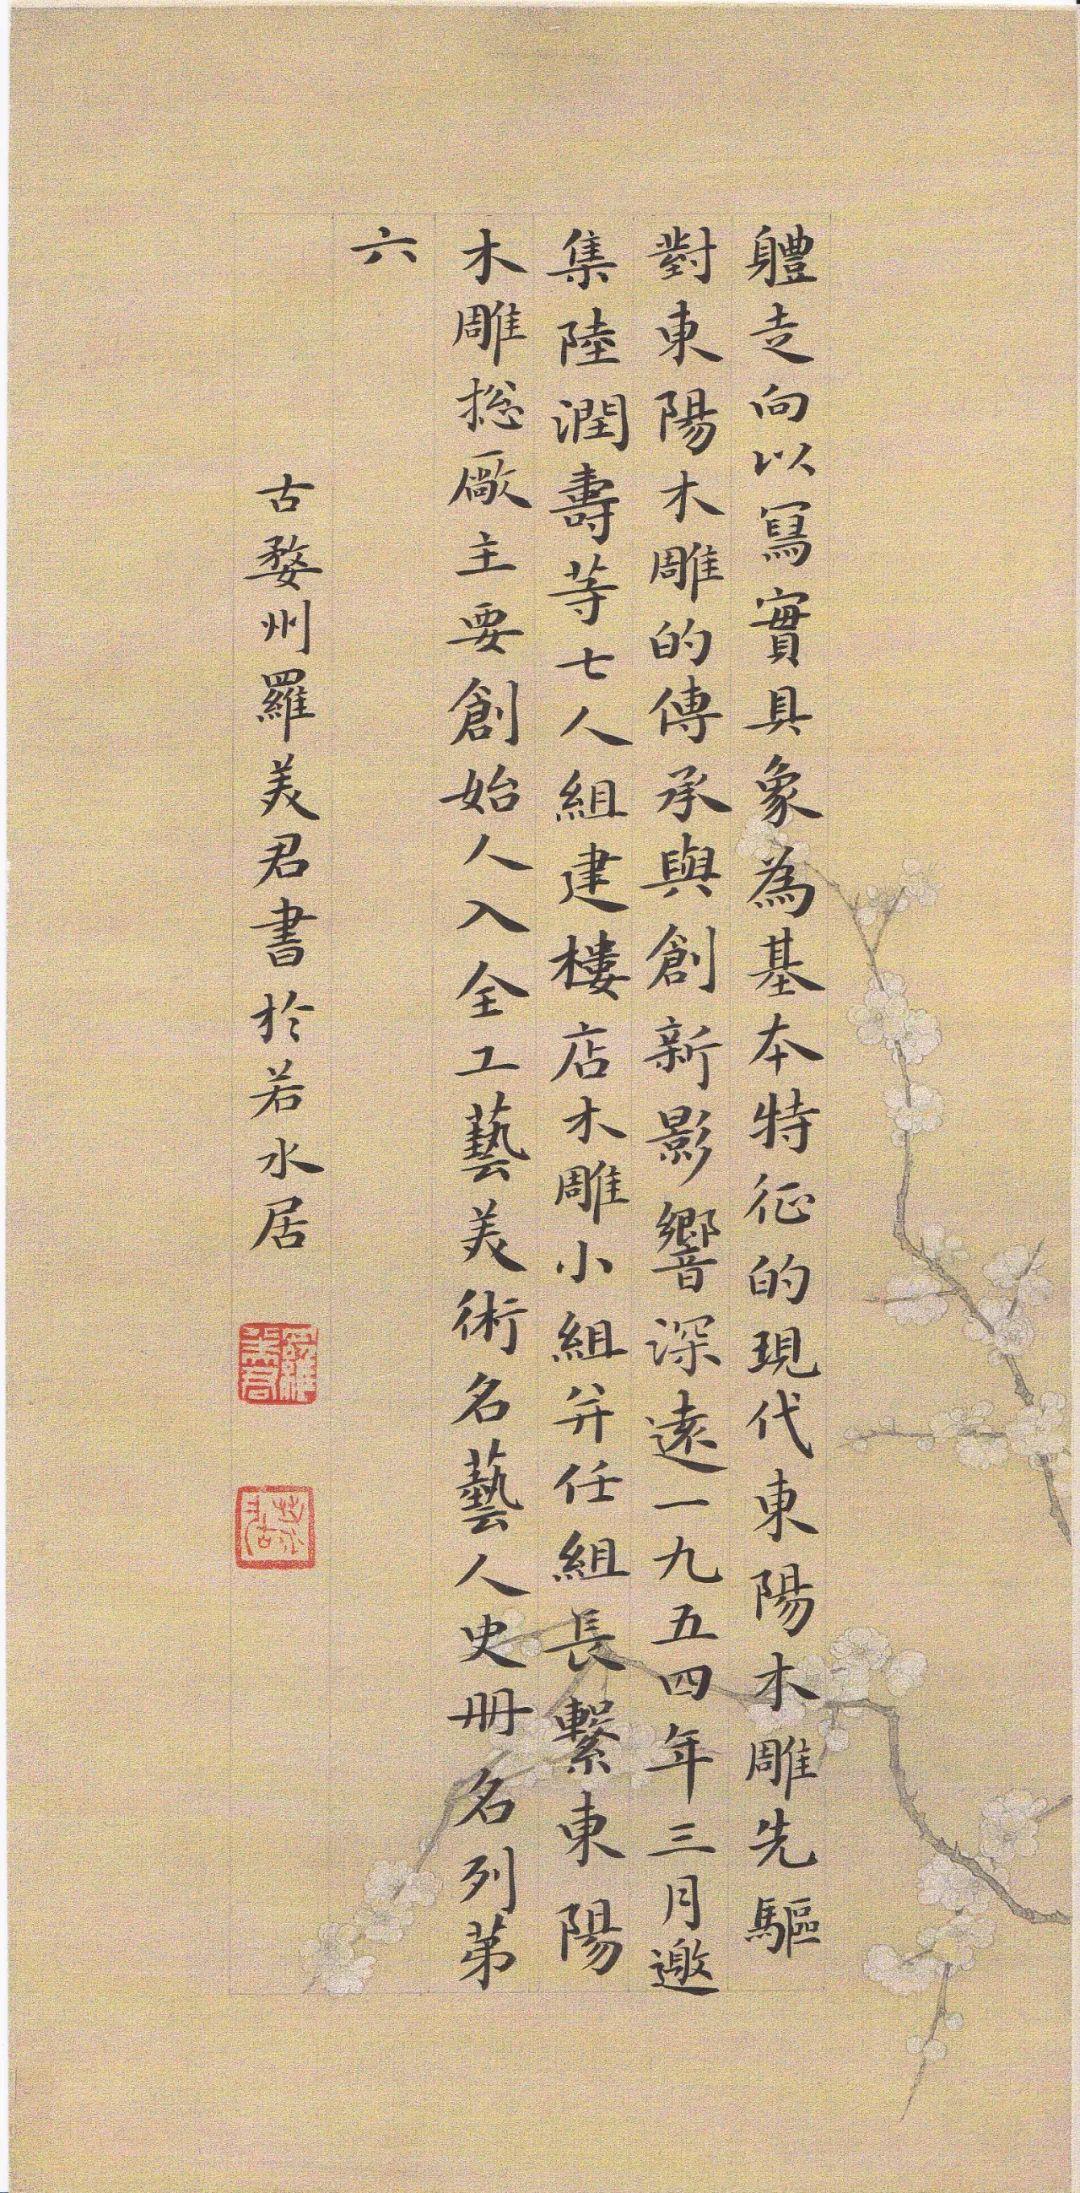 軆走向以寫實具象為基本特征的現代東陽木雕先驅
對東陽木雕的傳承與創新影響深遠一九五四年三月邀
集陸潤壽等七人組建樓店木雕小組并任組長繫東陽
木雕捴廠主要創始人入全工藝美術名藝人史冊名列第
六
古婺州羅美君書於若水居
羅美君